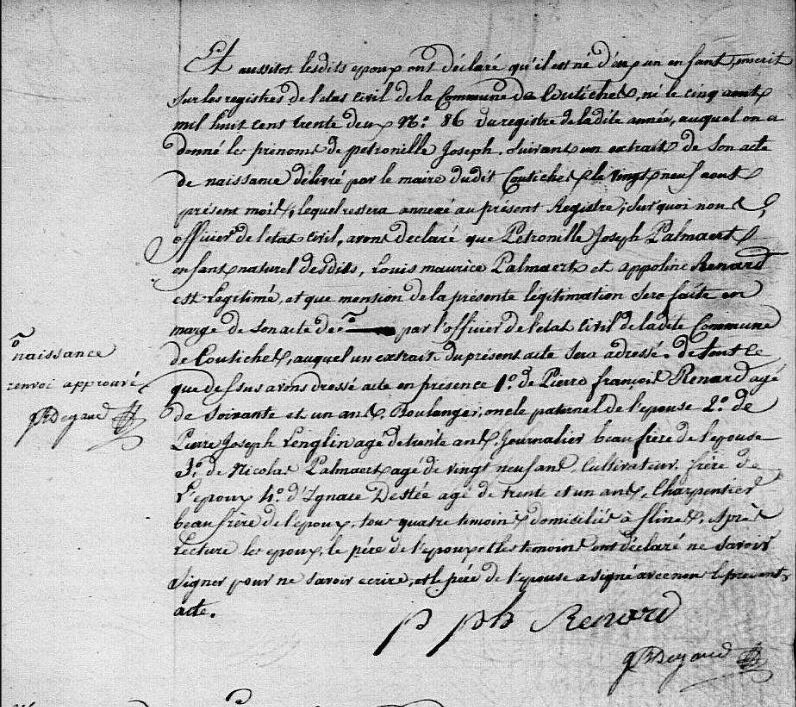 Et aussitot lesdits epoux ont déclaré qu'il est né d'eux un enfant, inscrit
sur les registres de l'etat civil de la Commune de Coutiches, né le cinq aout
mil huit cent trente deux N.º 86 du registre de ladite année, auquel on a
donné les prénoms de petronille Joseph. suivant un extrait de son acte
de naissance délivré par le maire dudit Coutiches le vingt neuf aout
présent mois, lequel restera annexé au présent Registre; Sur quoi nous
officier de l'etat civil, avons declaré que Petronille Joseph Palmaert
enfant naturel desdits, Louis maurice Palmaert et appoline Renard
est legitimé, et que mention de la présente légitimation sera faite en
marge de son acte de par l'officier de l'etat civil de ladite Commune
de Coutiches, auquel un extrait du présent acte sera adressé. de tout ce
que dessus avons dressé acte en presence 1.º de Pierre françois Renard agé
de soixante et un ans, Boulanger, oncle paternel de l'epouse 2.º de
Pierre Joseph Lenglin agé de trente ans, Journalier beau frère de l'epouse
3.º de Nicolas Palmaert agé de vingt neuf ans, Cultivateur, frère de
l'epoux 4.º d'Ignace Destée agé de trente et un ans, Charpentier
beau frère de l'epoux, tous quatre temoins domiciliés à flines, Après
Lecture les epoux, le père de l'epoux et les temoins ont déclaré ne savoir
signer pour ne savoir ecrire, et le père de l'epouse a signé avec nous le présent
acte.
naissance
renvoi approuvé
p ph Renard